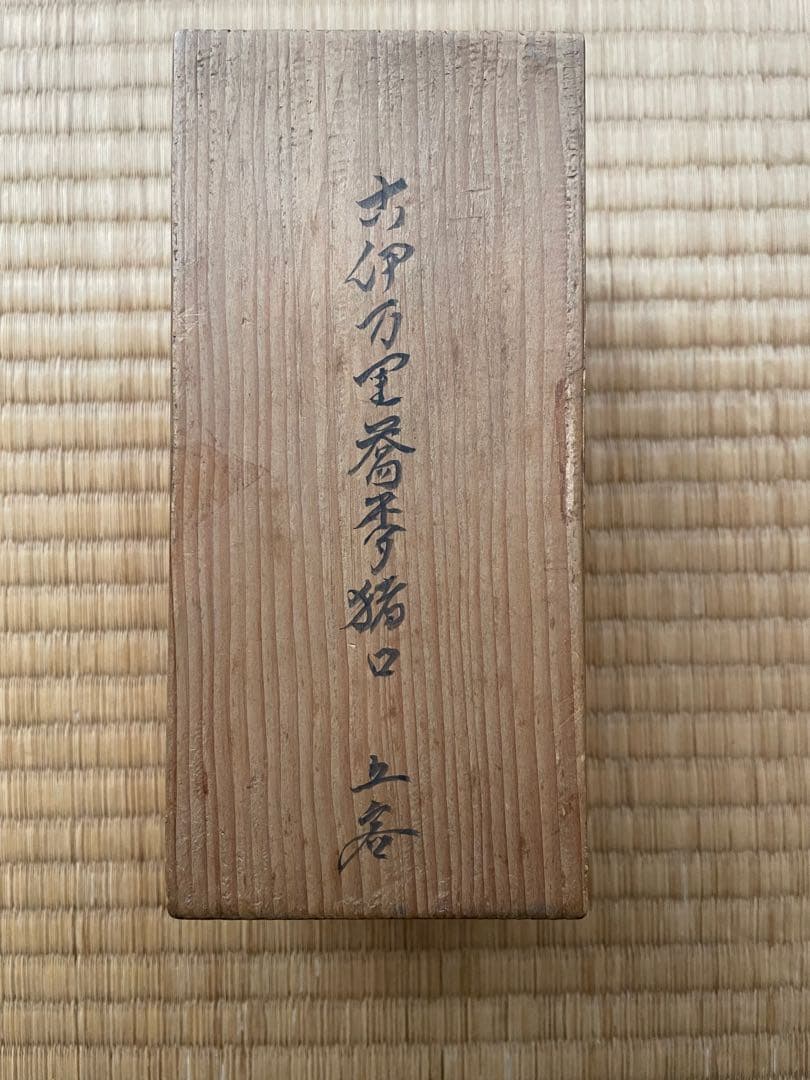 古伊万里蕎麥猪口 五客